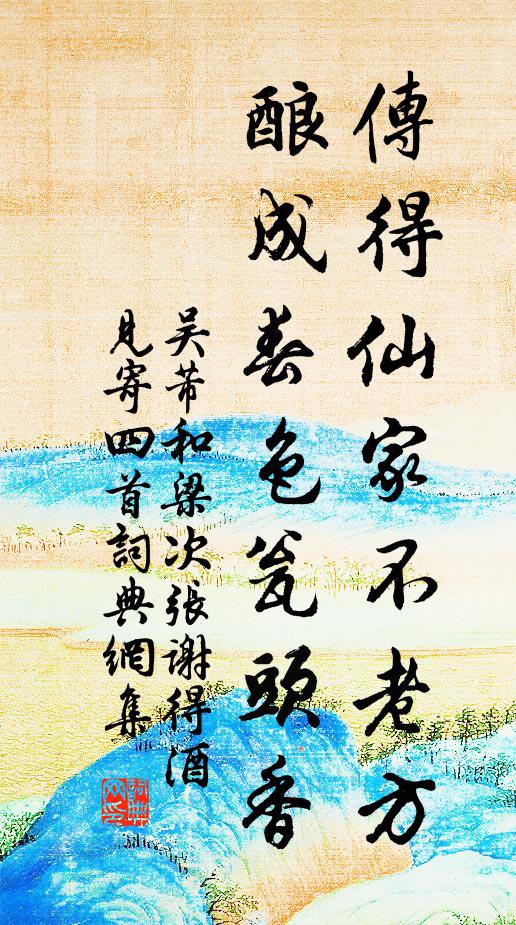 傳得仙家不老方
酿成春色瓮頭香
吴芾和梁次張謝得酒
見寄四首詞典網集